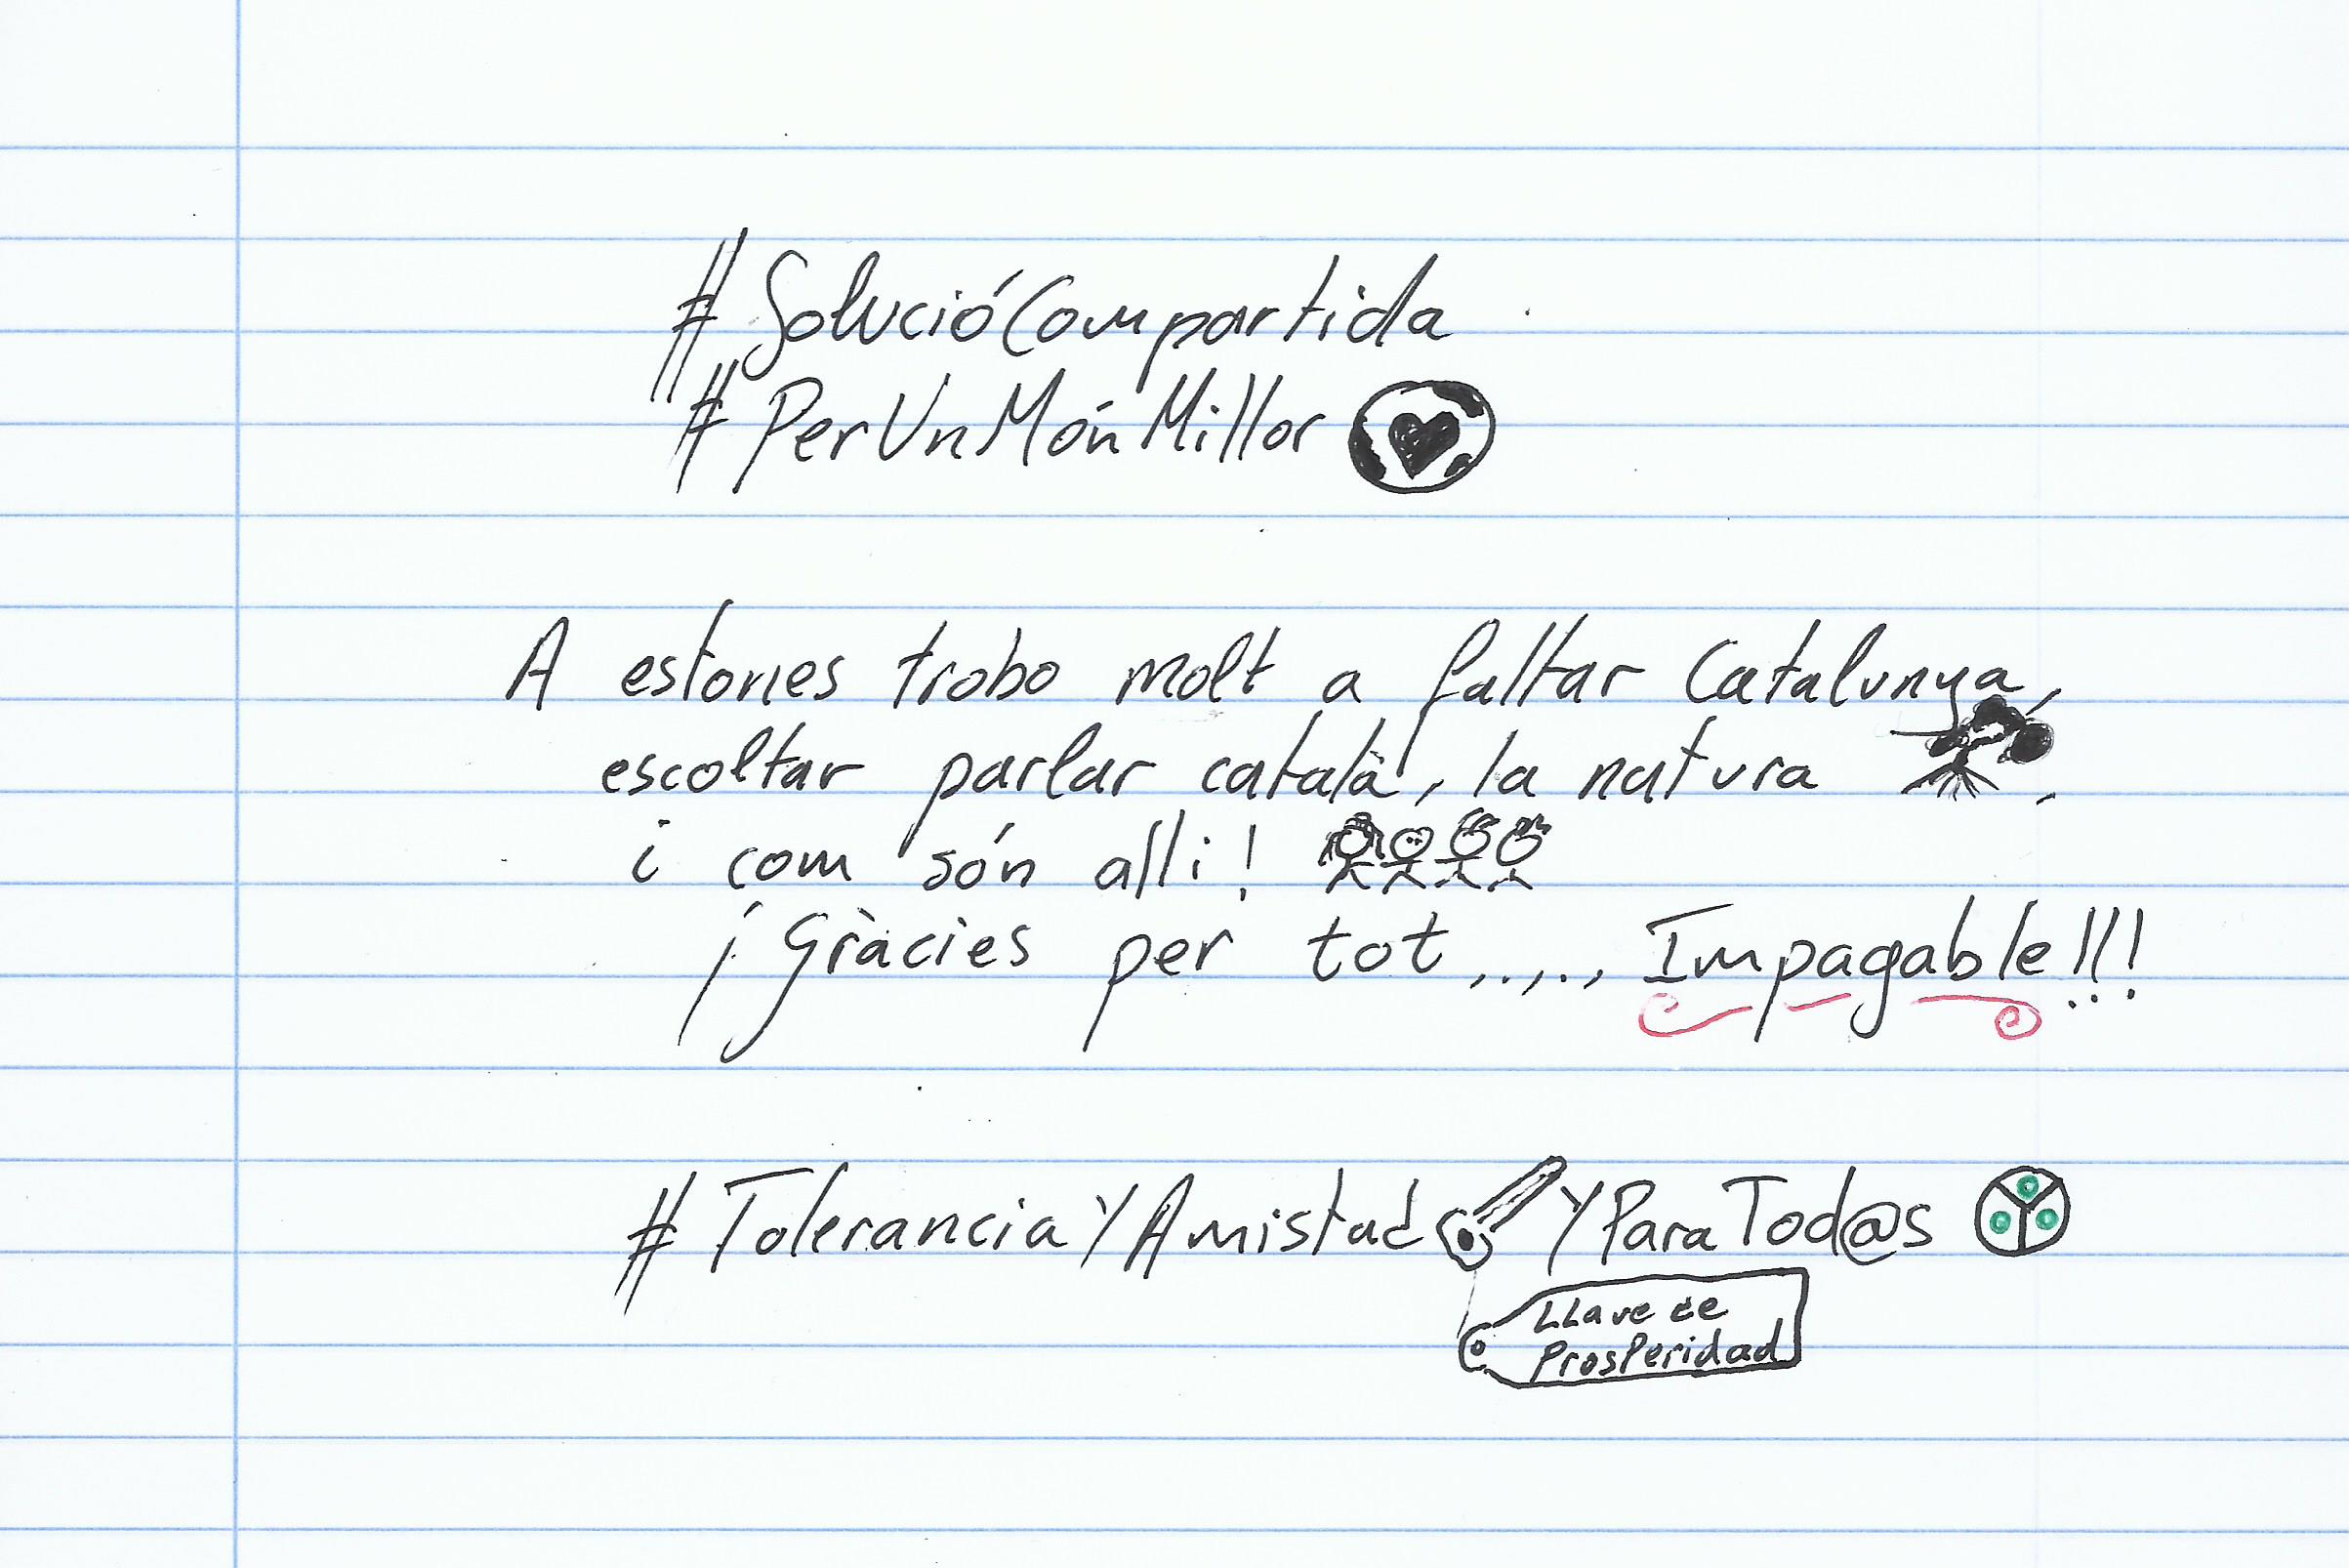 #SolucióCompartida
#PerUnMónMillor
A estones trobo molt a faltar Catalunya,
escoltar parlar català, la natura ,
i com són allí!
¡Gràcies per tot,..,.., Impagable!!!
#ToleranciaYAmistad YParaTod@s
Llave de
Prosperidad